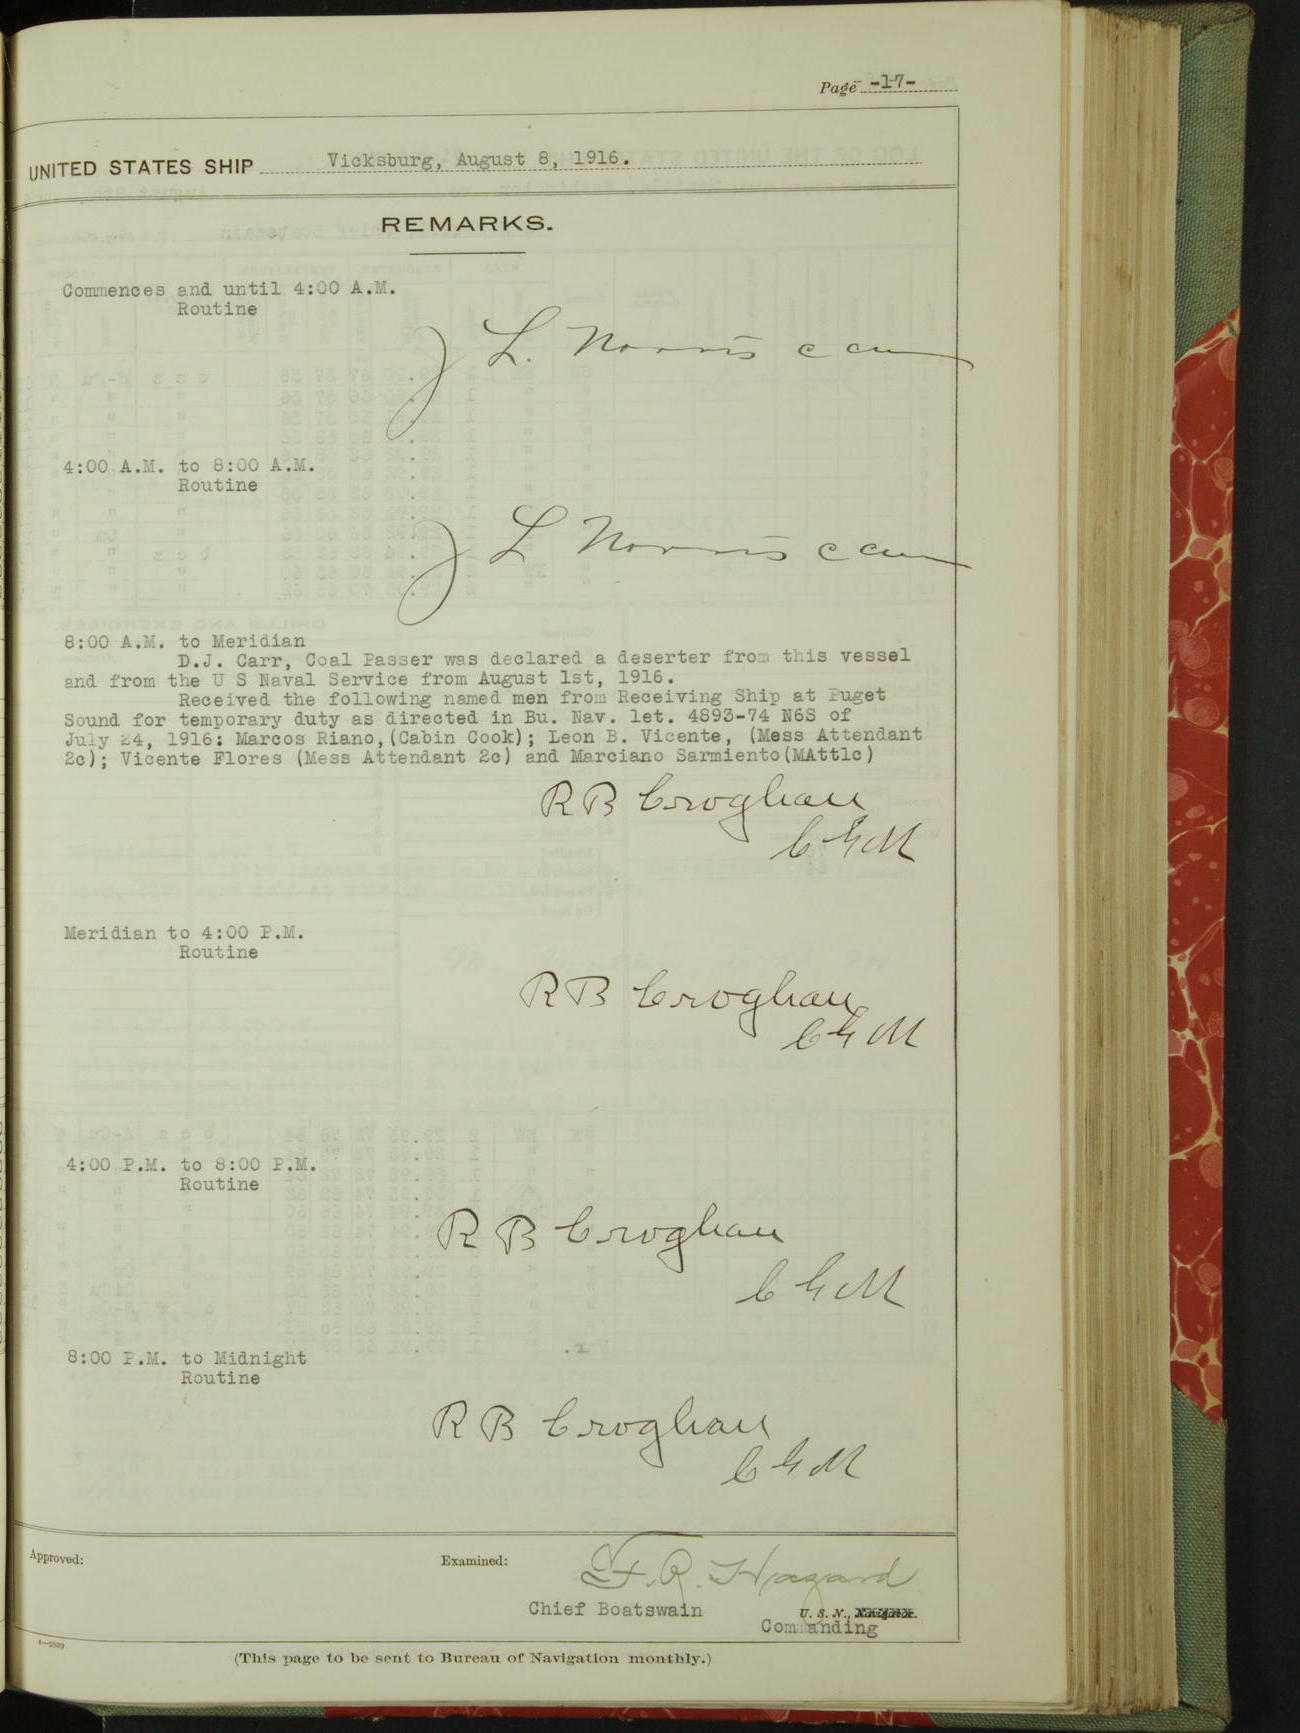 Page -17-
UNITED STATES SHIP Vicksburg, August 8, 1916.
REMARKS.
Commences and until 4:00 A.M.
Routine
J L. Norris c cm
4:00 A.M. to 8:00 A.M.
Routine
J L Norris c cm
8:00 A.M. to Meridian
D.J. Carr, Coal Passer was declared a deserter from this vessel
and from the U S Naval Service from August 1st, 1916.
Received the following named men from Receiving Ship at Puget
Sound for temporary duty as directed in Bu. Nav. let. 4893-74 N6S of
July 24, 1916: Marcos Riano,(Cabin Cook); Leon B. Vicente, (Mess Attendant
2c); Vicente Flores (Mess Attendant 2c) and Marciano Sarmiento(MAtt1c)
R B Croghan
C G M
Meridian to 4:00 P.M.
Routine
R B Croghan
C G M
4:00 P.M. to 8:00 P.M.
Routine
R B Croghan
C G M
8:00 P.M. to Midnight
Routine
R B Croghan
C G M
Approved:
Examined: F. R. Hazard
Chief Boatswain U. S. N., Navigator.
Commanding
(This page to be sent to Bureau of Navigation monthly.)